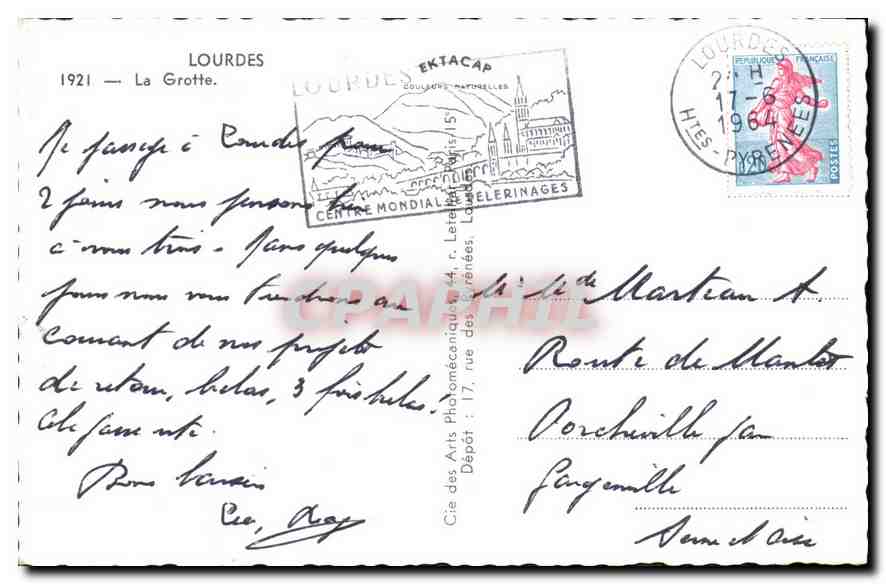 LOURDES
1921. — La Grotte.
EKTACAP
COULEURS NATURELLES
LOURDES
CENTRE MONDIAL PELERINAGES
LOURDES
17-6
1964
HTES-PYRENEES
REPUBLIQUE FRANÇAISE
0,20
POSTES
De passage à Lourdes pour
2 jours nous pensons bien
à vous trois - Dans quelques
jours nous vous tiendrons au
courant de nos projets
de retour, hélas, 3 fois hélas!
Cela passe vite.
Bons baisers
Cie des Arts Photomécaniques, 44, r. Letellier, Paris-15e
Dépôt : 17, rue des Pyrénées, Lourdes
CPARPHIL
Mr Mde Marteau A.
Route de
Porcheville par
Gargenville
Seine et Oise